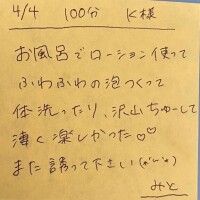 4/4 100分 K様
お風呂でローション使って
ふわふわの泡つくって
体洗ったり、沢山ちゅーして
凄く楽しかった♡♡
また誘って下さい
みと